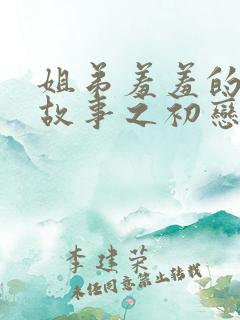 姐弟羞羞的
故事之初戀
李建荣
未经同意禁止转载